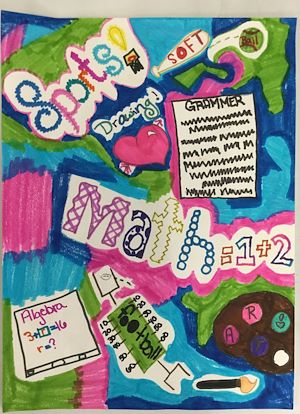 Sports!
SOFT
Ball
Drawing!
GRAMMER
Math=1+2
Algebra
r=?
Football
A R